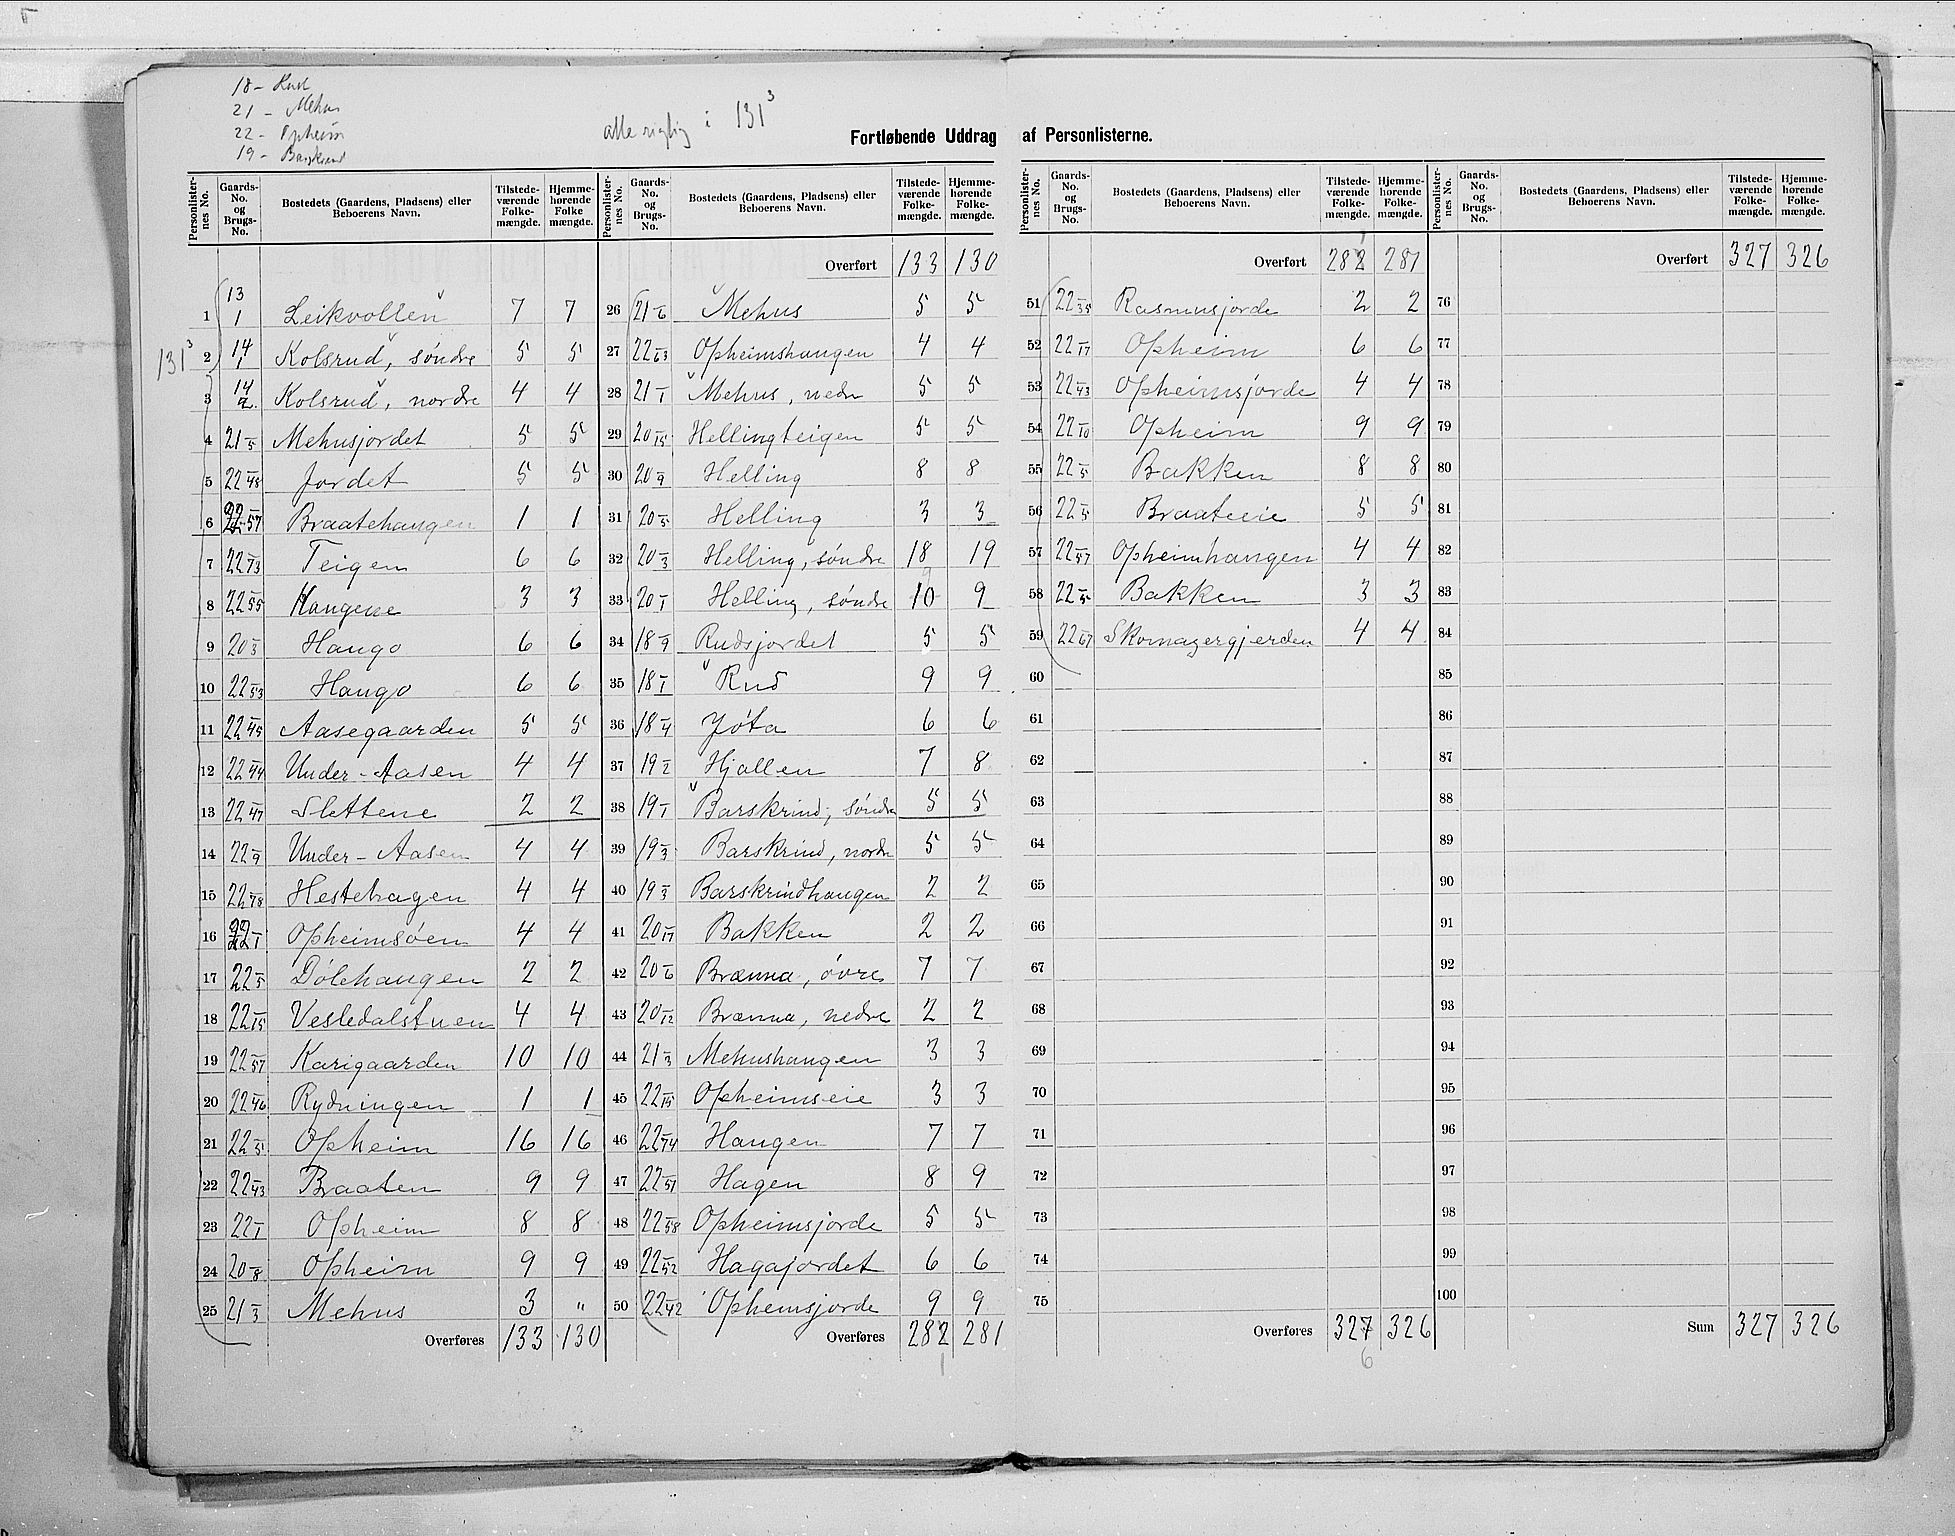 18 - Rud
21 - Mehus
22 - Opheim
19 - Barskrind
alle rigtig i 131³
Fortløbende Uddrag af Personlisterne.
Personlisternes No. | Gaards-No. og Brugs-No. | Bostedets (Gaardens, Pladsens) eller Beboerens Navn. | Tilstedeværende Folkemængde. | Hjemmehørende Folkemængde.
131³
1 13/1 Leikvollen 7 7
2 14/1 Kolsrud, søndre 5 5
3 14/2 Kolsrud, nordre 4 4
4 21/5 Mehusjordet 5 5
5 22/48 Jordet 5 5
6 22/57 Braatehaugen 1 1
7 22/73 Teigen 6 6
8 22/55 Haugene 3 3
9 20/3 Haugo 6 6
10 22/53 Haugo 6 6
11 22/45 Aasegaarden 5 5
12 22/44 Under-Aasen 4 4
13 22/47 Slettene 2 2
14 22/9 Under-Aasen 4 4
15 22/78 Hestehagen 4 4
16 22/1 Opheimsøen 4 4
17 22/5 Dølehaugen 2 2
18 22/15 Vesledalstuen 4 4
19 22/57 Karigaarden 10 10
20 22/46 Rydningen 1 1
21 22/5 Opheim 16 16
22 22/43 Braaten 9 9
23 22/1 Opheim 8 8
24 20/8 Opheim 9 9
25 21/3 Mehus 3 "
Overføres 133 130
Overført 133 130
26 21/6 Mehus 5 5
27 22/63 Opheimshaugen 4 4
28 21/1 Mehus, nedre 5 5
29 20/15 Hellingteigen 5 5
30 20/9 Helling 8 8
31 20/5 Helling 3 3
32 20/3 Helling, søndre 18 19
33 20/1 Helling, søndre 10 9
34 18/9 Rudsjordet 5 5
35 18/1 Rud 9 9
36 18/4 Jøta 6 6
37 19/2 Hjallen 7 8
38 19/1 Barskrind, søndre 5 5
39 19/3 Barskrind, nordre 5 5
40 19/3 Barskrindhaugen 2 2
41 20/17 Bakken 2 2
42 20/6 Brænna, øvre 7 7
43 20/12 Brænna, nedre 2 2
44 21/3 Mehushaugen 3 3
45 22/15 Opheimseie 3 3
46 22/74 Haugen 7 7
47 22/51 Hagen 8 9
48 22/58 Opheimsjorde 5 5
49 22/52 Hagajordet 6 6
50 22/42 Opheimsjorde 9 9
Overføres 282 281
1
Overført 282 281
51 22/35 Rasmusjorde 2 2
52 22/17 Opheim 6 6
53 22/43 Opheimsjorde 4 4
54 22/10 Opheim 9 9
55 22/5 Bakken 8 8
56 22/5 Braateeie 5 5
57 22/57 Opheimhaugen 4 4
58 22/5 Bakken 3 3
59 22/67 Skomagergjerden 4 4
60
61
62
63
64
65
66
67
68
69
70
71
72
73
74
75
Overføres 327 326
6
Overført 327 326
76
77
78
79
80
81
82
83
84
85
86
87
88
89
90
91
92
93
94
95
96
97
98
99
100
Sum 327 326